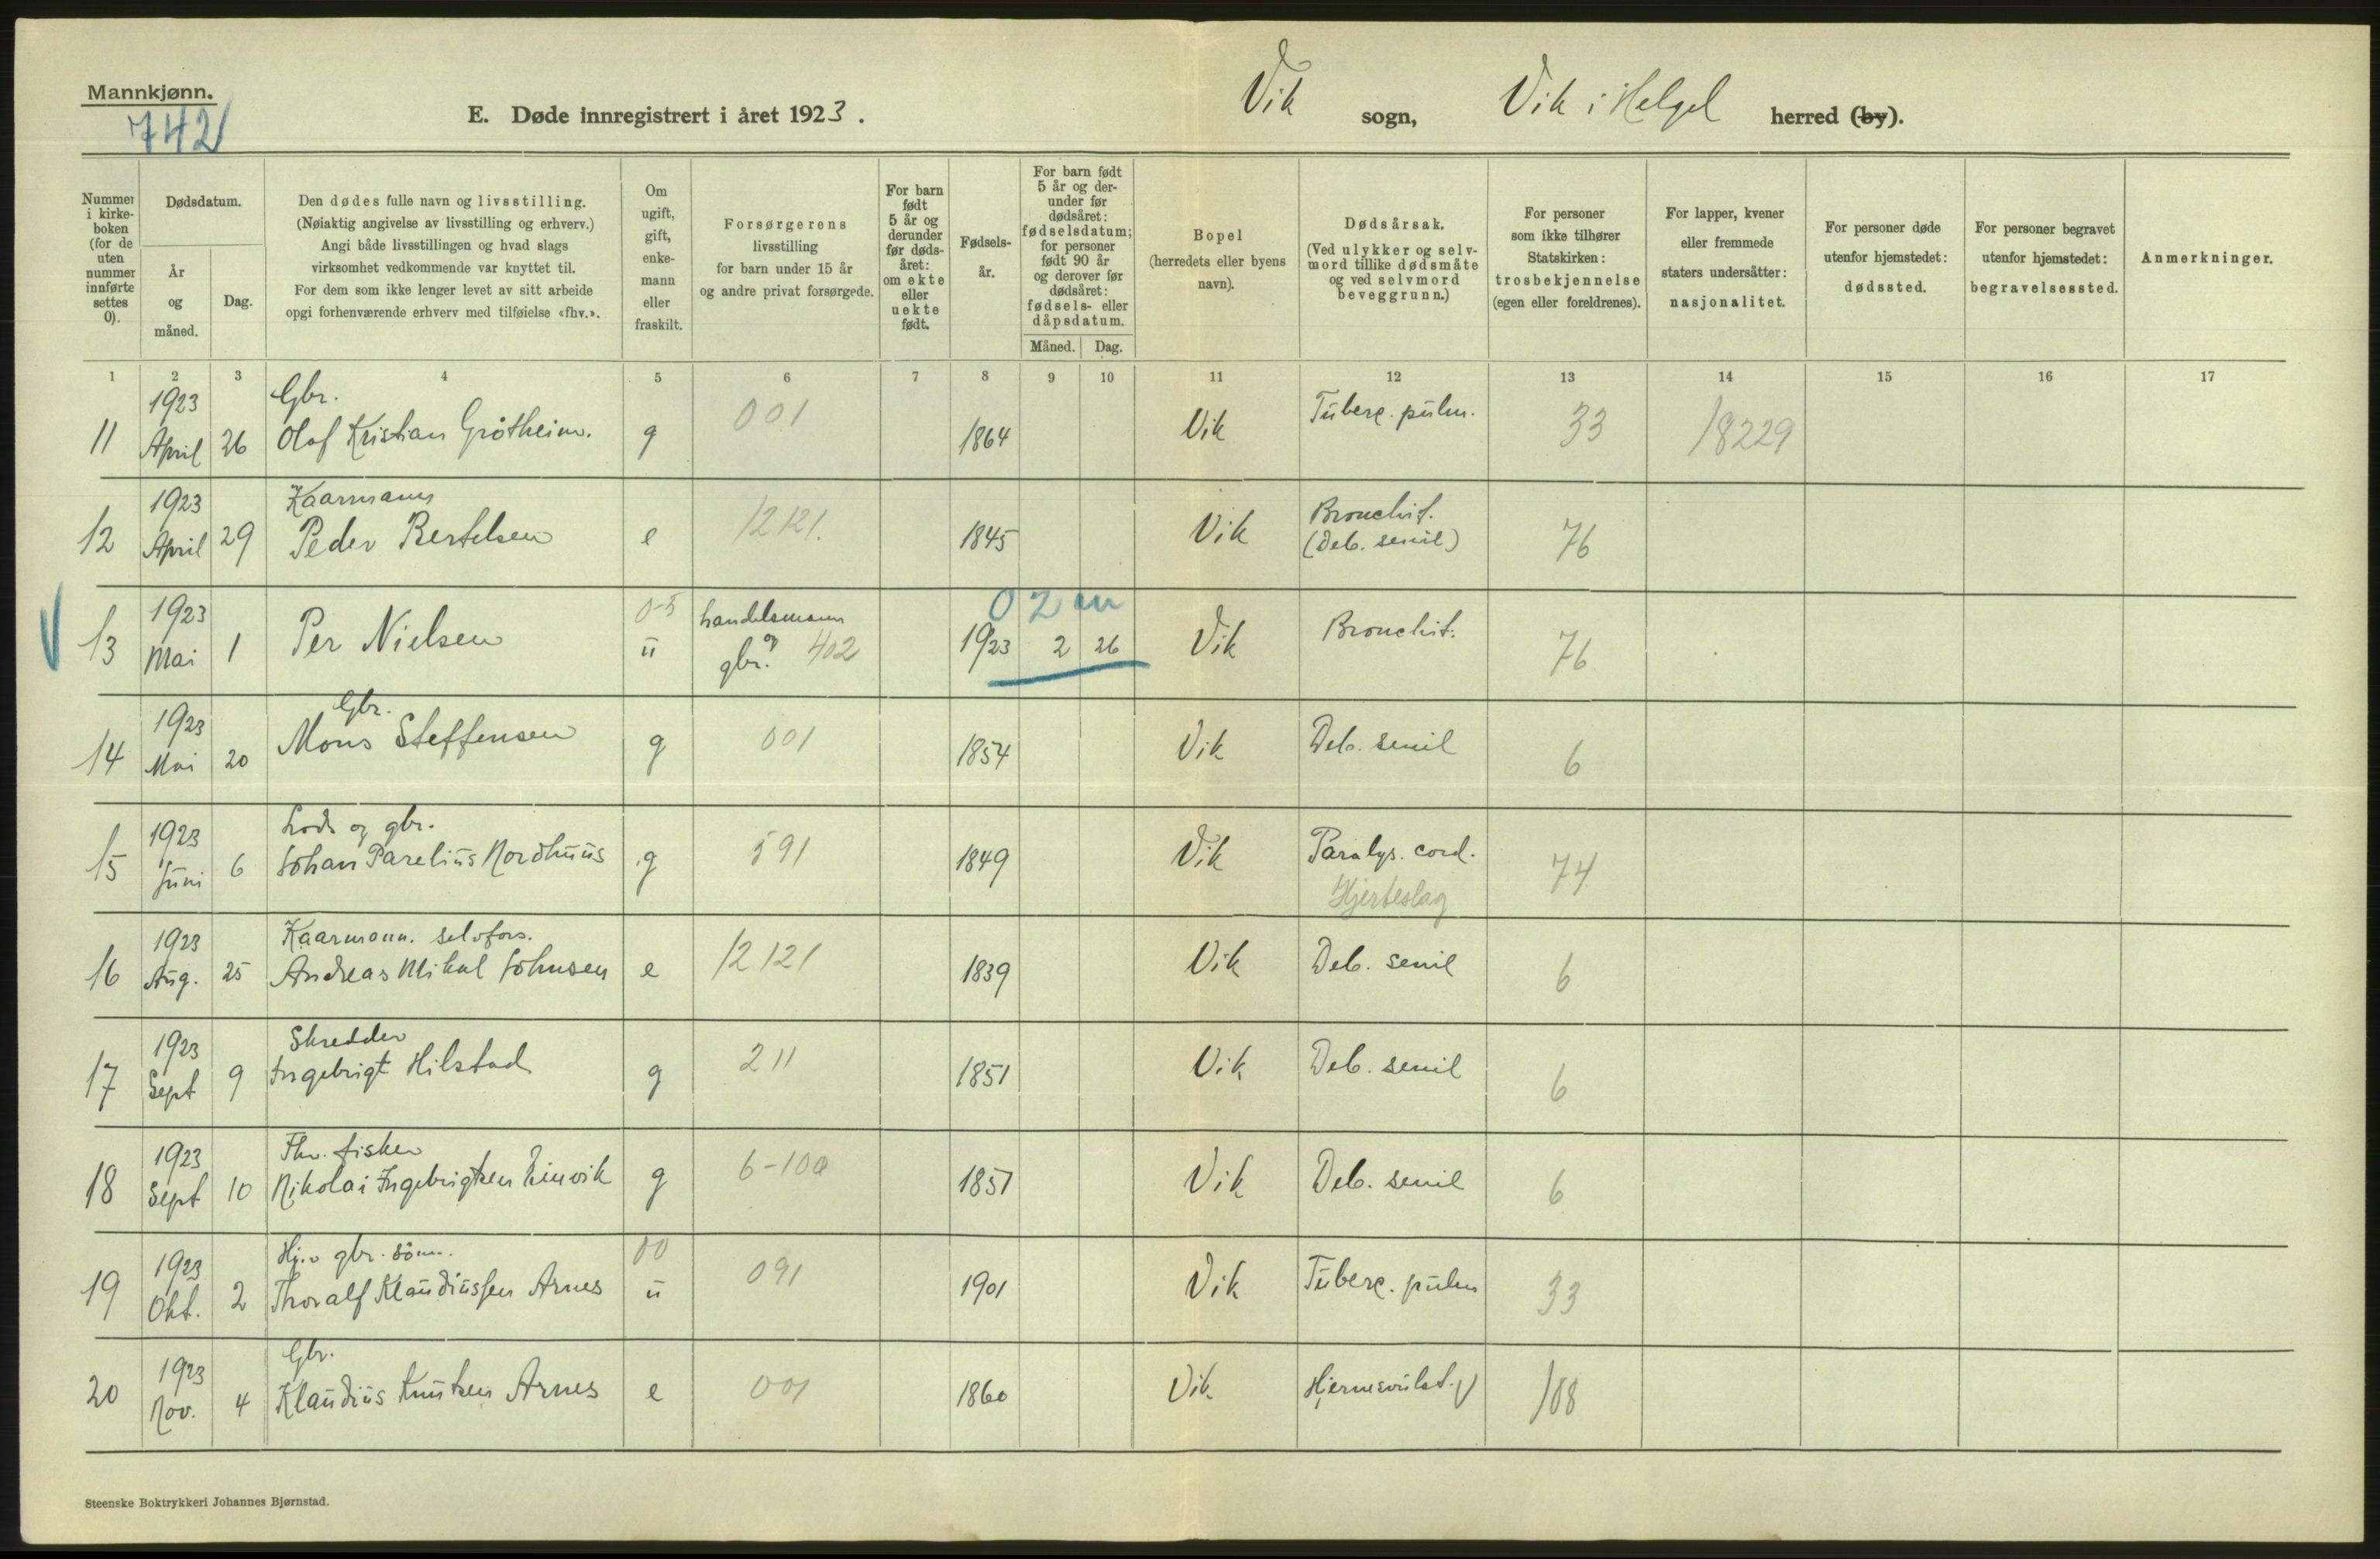 Mannkjønn.
742
E. Døde innregistrert i året 1923.
Vik sogn, Vik i Helgel herred (by).
Nummer i kirke- boken (for de uten nummer innførte settes 0).
Dødsdatum.
År og måned.
Dag.
Den dødes fulle navn og livsstilling.
(Nøiaktig angivelse av livsstilling og erhverv.)
Angi både livsstillingen og hvad slags
virksomhet vedkommende var knyttet til.
For dem som ikke lenger levet av sitt arbeide
opgi forhenværende erhverv med tilføielse «fhv.».
Om ugift, gift, enke- mann eller fraskilt.
Forsørgerens
livsstilling
for barn under 15 år
og andre privat forsørgede.
For barn født 5 år og derunder før døds- året: om ekte eller uekte født.
Fødsels- år.
For barn født 5 år og der- under før dødsåret: fødselsdatum; for personer født 90 år og derover før dødsåret: fødsels- eller dåpsdatum.
Måned. Dag.
Bopel
(herredets eller byens
navn).
Dødsårsak.
(Ved ulykker og selv-
mord tillike dødsmåte
og ved selvmord
beveggrunn.)
For personer
som ikke tilhører
Statskirken:
trosbekjennelse
(egen eller foreldrenes).
For lapper, kvener
eller fremmede
staters undersåtter:
nasjonalitet.
For personer døde
utenfor hjemstedet:
dødssted.
For personer begravet
utenfor hjemstedet:
begravelsessted.
Anmerkninger.
1 2 3 4 5 6 7 8 9 10 11 12 13 14 15 16 17
1923 Gbr.
11 April 26 Olaf Kristian Grötheim. g 001 1864 Vik Tüberc. pülm. 33 18229
1923 Kaarmann
12 April 29 Peder Bertelsen e 12121. 1845 Vik Bronchit. (Deb. senil) 76
1923 0-5 handelsmann 0 2 m
V 13 Mai 1 Per Nielsen ü og gbr. 402 1923 2 26 Vik Bronchit. 76
1923 Gbr.
14 Mai 20 Mons Steffensen g 001 1854 Vik Deb. senil 6
1923 Lods og gbr.
15 Jüni 6 Johan Pareliüs Nordhüüs g 591 1849 Vik Paralys. cord. 74
Hjerteslag
1923 Kaarmann. selvfors.
16 Aüg. 25 Andreas Mikal Johnsen e 12121 1839 Vik Deb. senil 6
1923 Skredder
17 Sept 9 Ingebrigt Hilstad g 211 1851 Vik Deb. senil 6
1923 Fhv. fisker
18 Sept 10 Nikolai Ingebrigtsen g 6-100 1851 Vik Deb. senil 6
1923 Hj.v gbr. sönn. 00
19 Okt. 2 Thoralf Klaüdiüssen Arnes ü 091 1901 Vik Tüberc. pülm 33
1923 Gbr.
20 Nov. 4 Klaüdiüs Knütsen Arnes e 001 1860 Vik Hjernesvülst. V 108
Steenske Boktrykkeri Johannes Bjørnstad.